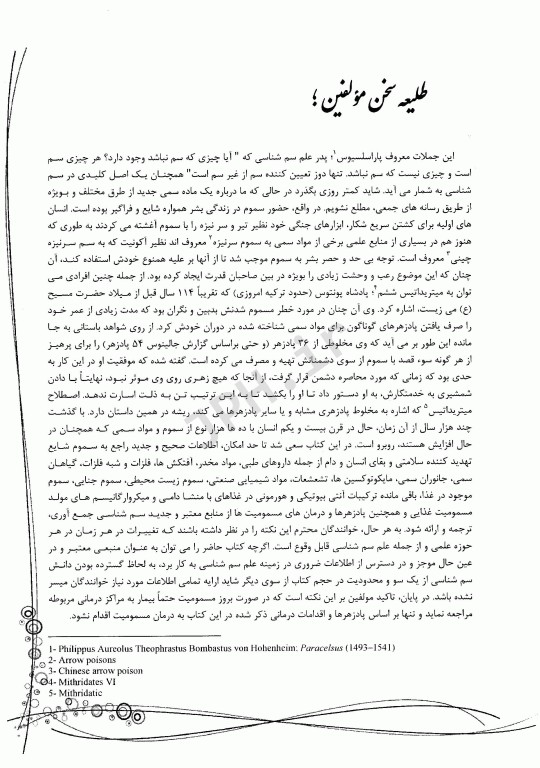 طلیعه سخن مؤلفین ؛
این جملات معروف پاراسلسیوس۱؛ پدر علم سم شناسی که " آیا چیزی که سم نباشد وجود دارد؟ هر چیزی سم
است و چیزی نیست که سم نباشد. تنها دوز تعیین کننده سم از غیر سم است" همچنان یک اصل کلیدی در سم
شناسی به شمار می آید. شاید کمتر روزی بگذرد در حالی که ما درباره یک ماده سمی جدید از طرق مختلف و بویژه
از طریق رسانه های جمعی، مطلع نشویم. در واقع، حضور سموم در زندگی بشر همواره شایع و فراگیر بوده است. انسان
های اولیه برای کشتن سریع شکار، ابزارهای جنگی خود نظیر تیر و سر نیزه را با سموم آغشته می کردند به طوری که
هنوز هم در بسیاری از منابع علمی برخی از مواد سمی به سموم سرنیزه۲ معروف اند نظیر آکونیت که به سم سرنیزه
چینی۳ معروف است. توجه بی حد و حصر بشر به سموم موجب شد تا از آنها بر علیه همنوع خودش استفاده کند، آن
چنان که این موضوع رعب و وحشت زیادی را بویژه در بین صاحبان قدرت ایجاد کرده بود. از جمله چنین افرادی می
توان به میتریداتیس ششم۴؛ پادشاه پونتوس (حدود ترکیه امروزی) که تقریباً ۱۱۴ سال قبل از میلاد حضرت مسیح
(ع) می زیست، اشاره کرد. وی آن چنان در مورد خطر مسموم شدنش بدبین و نگران بود که مدت زیادی از عمر خود
را صرف یافتن پادزهرهای گوناگون برای مواد سمی شناخته شده در دوران خودش کرد. از روی شواهد باستانی به جا
مانده این طور بر می آید که وی مخلوطی از ۳۶ پادزهر (و حتی براساس گزارش جالینوس ۵۴ پادزهر) را برای پرهیز
از هر گونه سوء قصد با سموم از سوی دشمنانش تهیه و مصرف می کرده است. گفته شده که موفقیت او در این کار به
حدی بود که زمانی که مورد محاصره دشمن قرار گرفت، از آنجا که هیچ زهری روی وی موثر نبود، نهایتاً با دادن
شمشیری به خدمتکارش، به او دستور داد تا او را بکشد تا به این ترتیب تن به ذلت اسارت ندهد. اصطلاح
میتریداتیس۵ که اشاره به مخلوط پادزهری مشابه و یا سایر پادزهرها می کند، ریشه در همین داستان دارد. با گذشت
چند هزار سال از آن زمان، حال در قرن بیست و یکم انسان با ده ها هزار نوع از سموم و مواد سمی که همچنان در
حال افزایش هستند، روبرو است. در این کتاب سعی شد تا حد امکان، اطلاعات صحیح و جدید راجع به سموم شایع
تهدید کننده سلامتی و بقای انسان و دام از جمله داروهای طبی، مواد مخدر، آفتکش ها، فلزات و شبه فلزات، گیاهان
سمی، جانوران سمی، مایکوتوکسین ها، تشعشعات، مواد شیمیایی صنعتی، سموم زیست محیطی، سموم جنایی، سموم
موجود در غذا، باقی مانده ترکیبات آنتی بیوتیکی و هورمونی در غذاهای با منشا دامی و میکروارگانیسم های مولد
مسمومیت غذایی و همچنین پادزهرها و درمان های مسمومیت ها از منابع معتبر و جدید سم شناسی جمع آوری،
ترجمه و ارائه شود. به هر حال، خوانندگان محترم این نکته را در نظر داشته باشند که تغییرات در هر زمان در هر
حوزه علمی و از جمله علم سم شناسی قابل وقوع است. اگرچه کتاب حاضر را می توان به عنوان منبعی معتبر و در
عین حال موجز و در دسترس از اطلاعات ضروری در زمینه علم سم شناسی به کار برد، به لحاظ گسترده بودن دانش
سم شناسی از یک سو و محدودیت در حجم کتاب از سوی دیگر شاید ارایه تمامی اطلاعات مورد نیاز خوانندگان میسر
نشده باشد. در پایان، تاکید مولفین بر این نکته است که در صورت بروز مسمومیت حتماً بیمار به مراکز درمانی مربوطه
مراجعه نماید و تنها بر اساس پادزهرها و اقدامات درمانی ذکر شده در این کتاب به درمان مسمومیت اقدام نشود.
1- Philippus Aureolus Theophrastus Bombastus von Hohenheim: Paracelsus (1493–1541)
2- Arrow poisons
3- Chinese arrow poison
4- Mithridates VI
5- Mithridatic